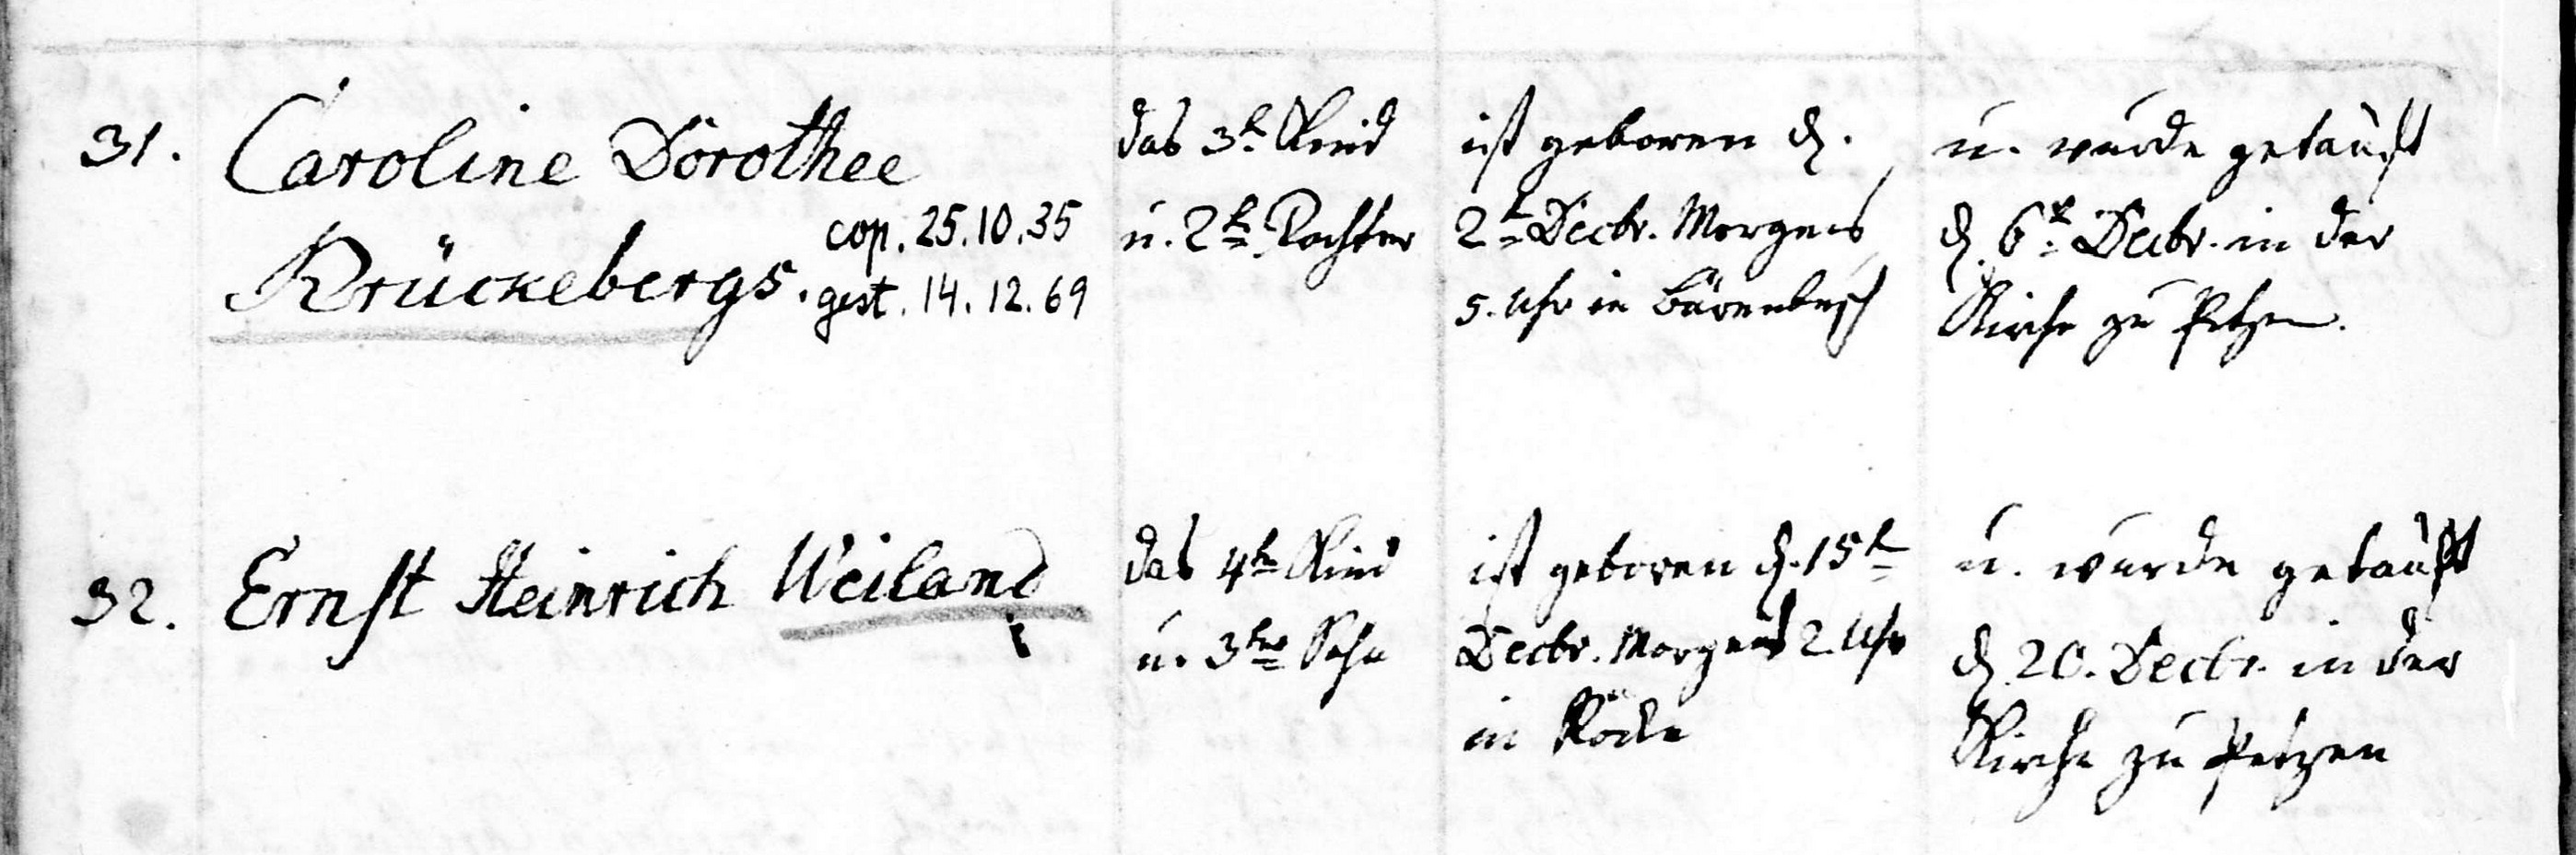 31. Caroline Dorothee
Krückebergs.
cop. 25.10.35
gest. 14.12.69
das 3te Kind
u. 2te Tochter
ist geboren d.
2te Decbr. Morgens
5. Uhr in Bärenbusch
u. wurde getauft
d. 6te Decbr. in der
Kirche zu Petzen.
32. Ernst Heinrich Weiland
das 4te Kind
u. 3ter Sohn
ist geboren d. 15te
Decbr. Morgens 2 Uhr
in Röcke
u. wurde getauft
d. 20. Decbr. in der
Kirche zu Petzen